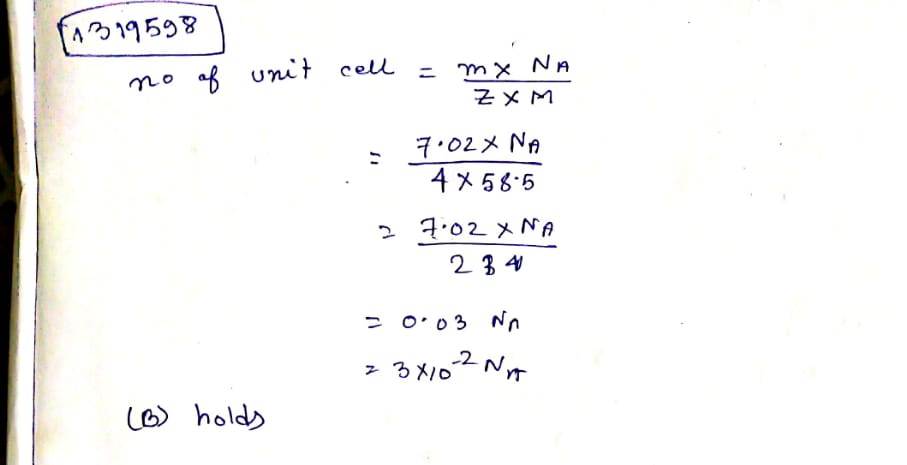 1319598
no of unit cell = m x NA / Z x M
= 7.02 x NA / 4 x 58.5
= 7.02 x NA / 234
= 0.03 NA
= 3 x 10^-2 NA
(B) holds